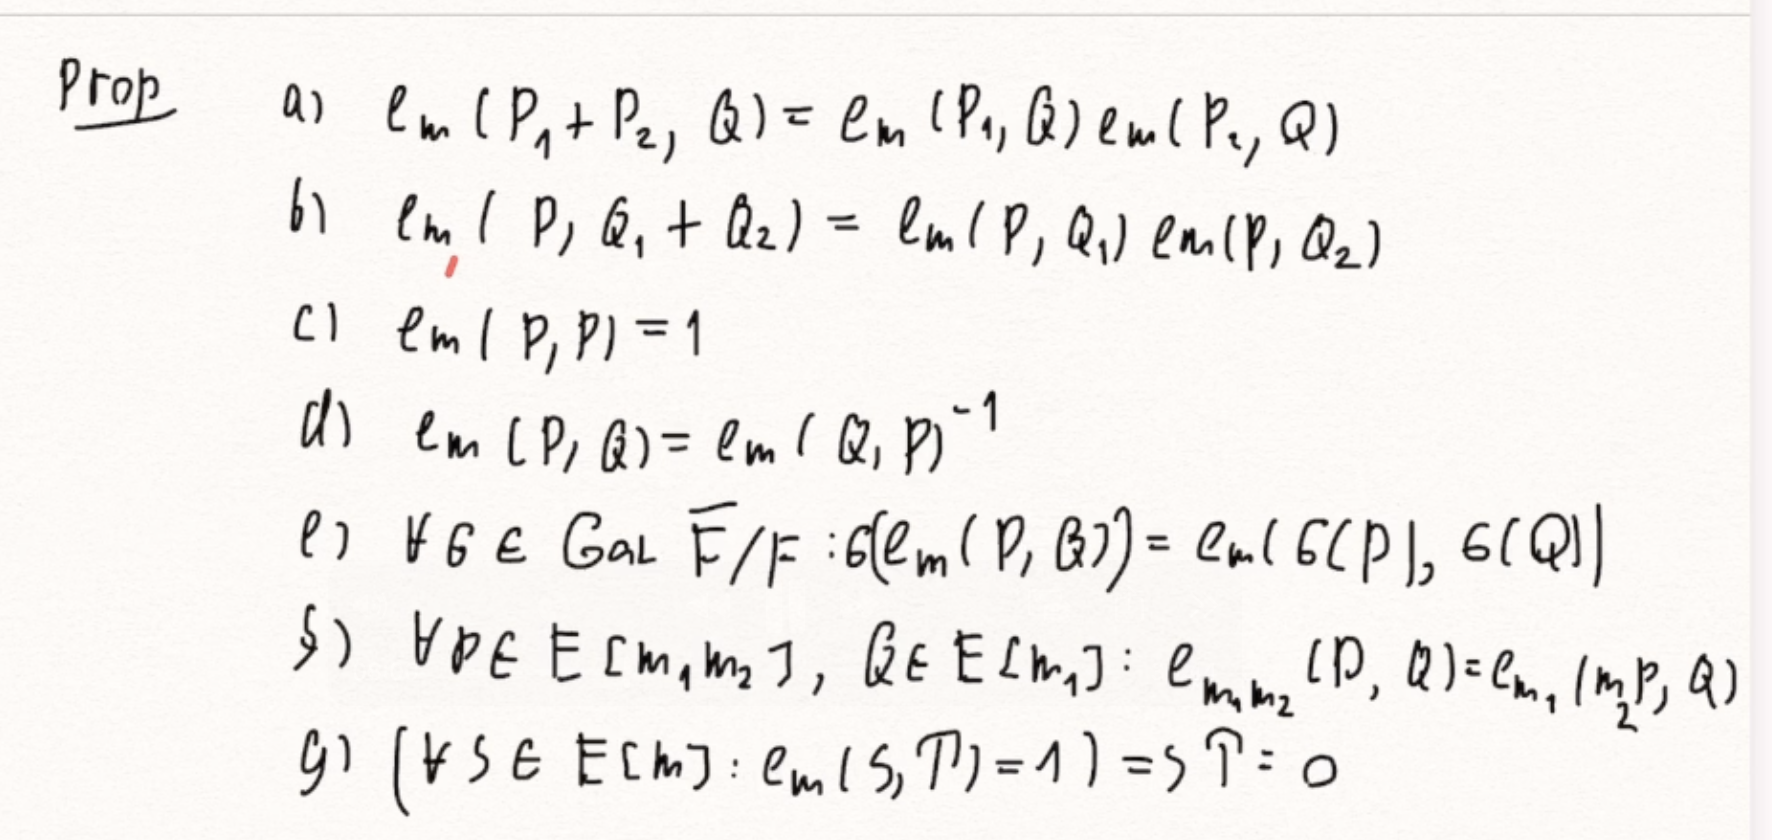 Prop a) e_m (P_1 + P_2, Q) = e_m (P_1, Q) e_m (P_2, Q)
b) e_m (P, Q_1 + Q_2) = e_m (P, Q_1) e_m (P, Q_2)
c) e_m (P, P) = 1
d) e_m (P, Q) = e_m (Q, P)^{-1}
e) ∀ σ ∈ Gal F̅/F : σ(e_m (P, Q)) = e_m (σ(P), σ(Q))
f) ∀ P ∈ E[m_1 m_2], Q ∈ E[m_1] : e_{m_1 m_2} (P, Q) = e_{m_1} (m_2 P, Q)
g) (∀ S ∈ E[m] : e_m (S, T) = 1) => T = O